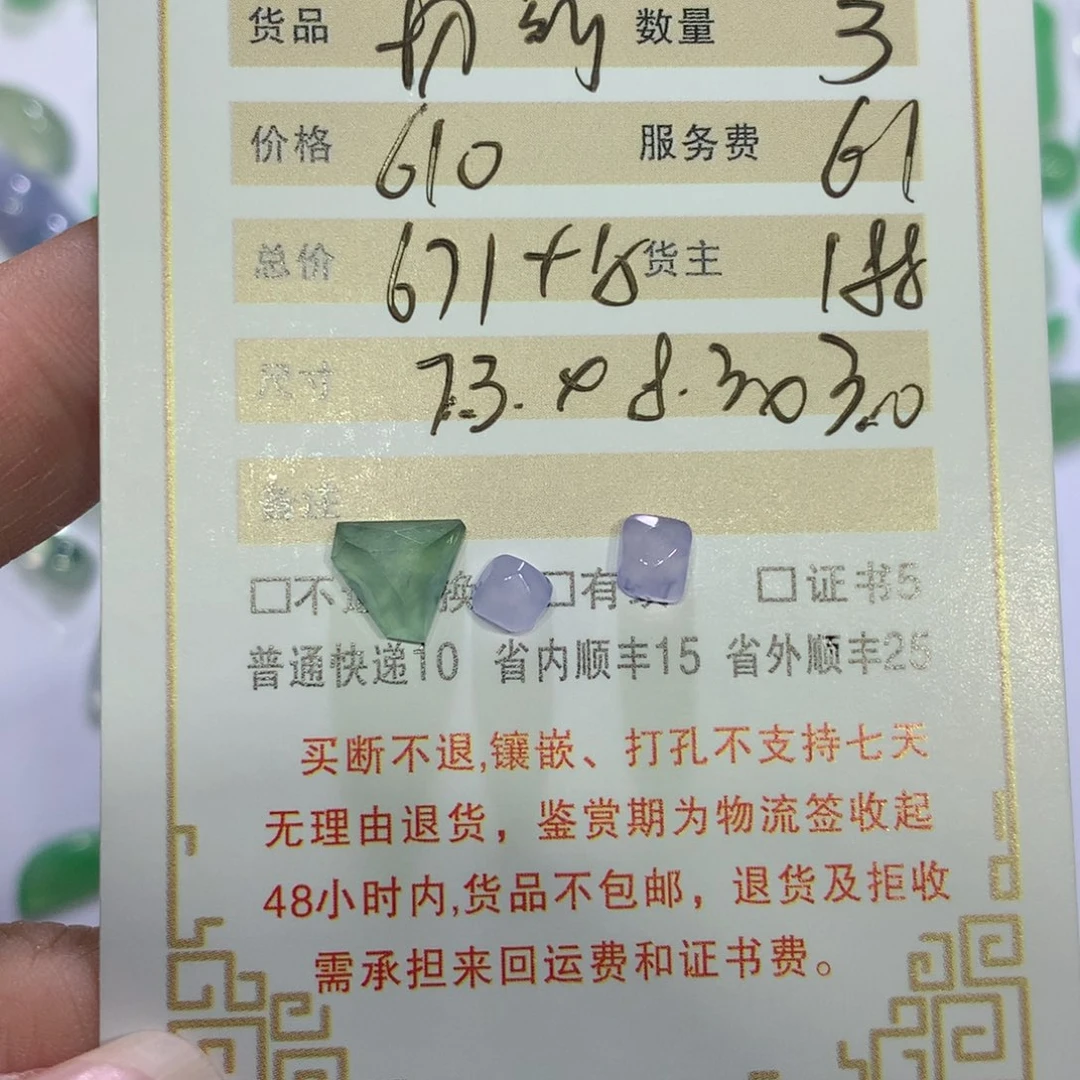 货品 数量 3
价格 610 服务费 61
总价 671+18 货主 188
尺寸 7.3.×8.3×3.0
备注
□不退换 □有 □证书5
普通快递10 省内顺丰15 省外顺丰25
买断不退,镶嵌、打孔不支持七天
无理由退货，鉴赏期为物流签收起
48小时内,货品不包邮，退货及拒收
需承担来回运费和证书费。